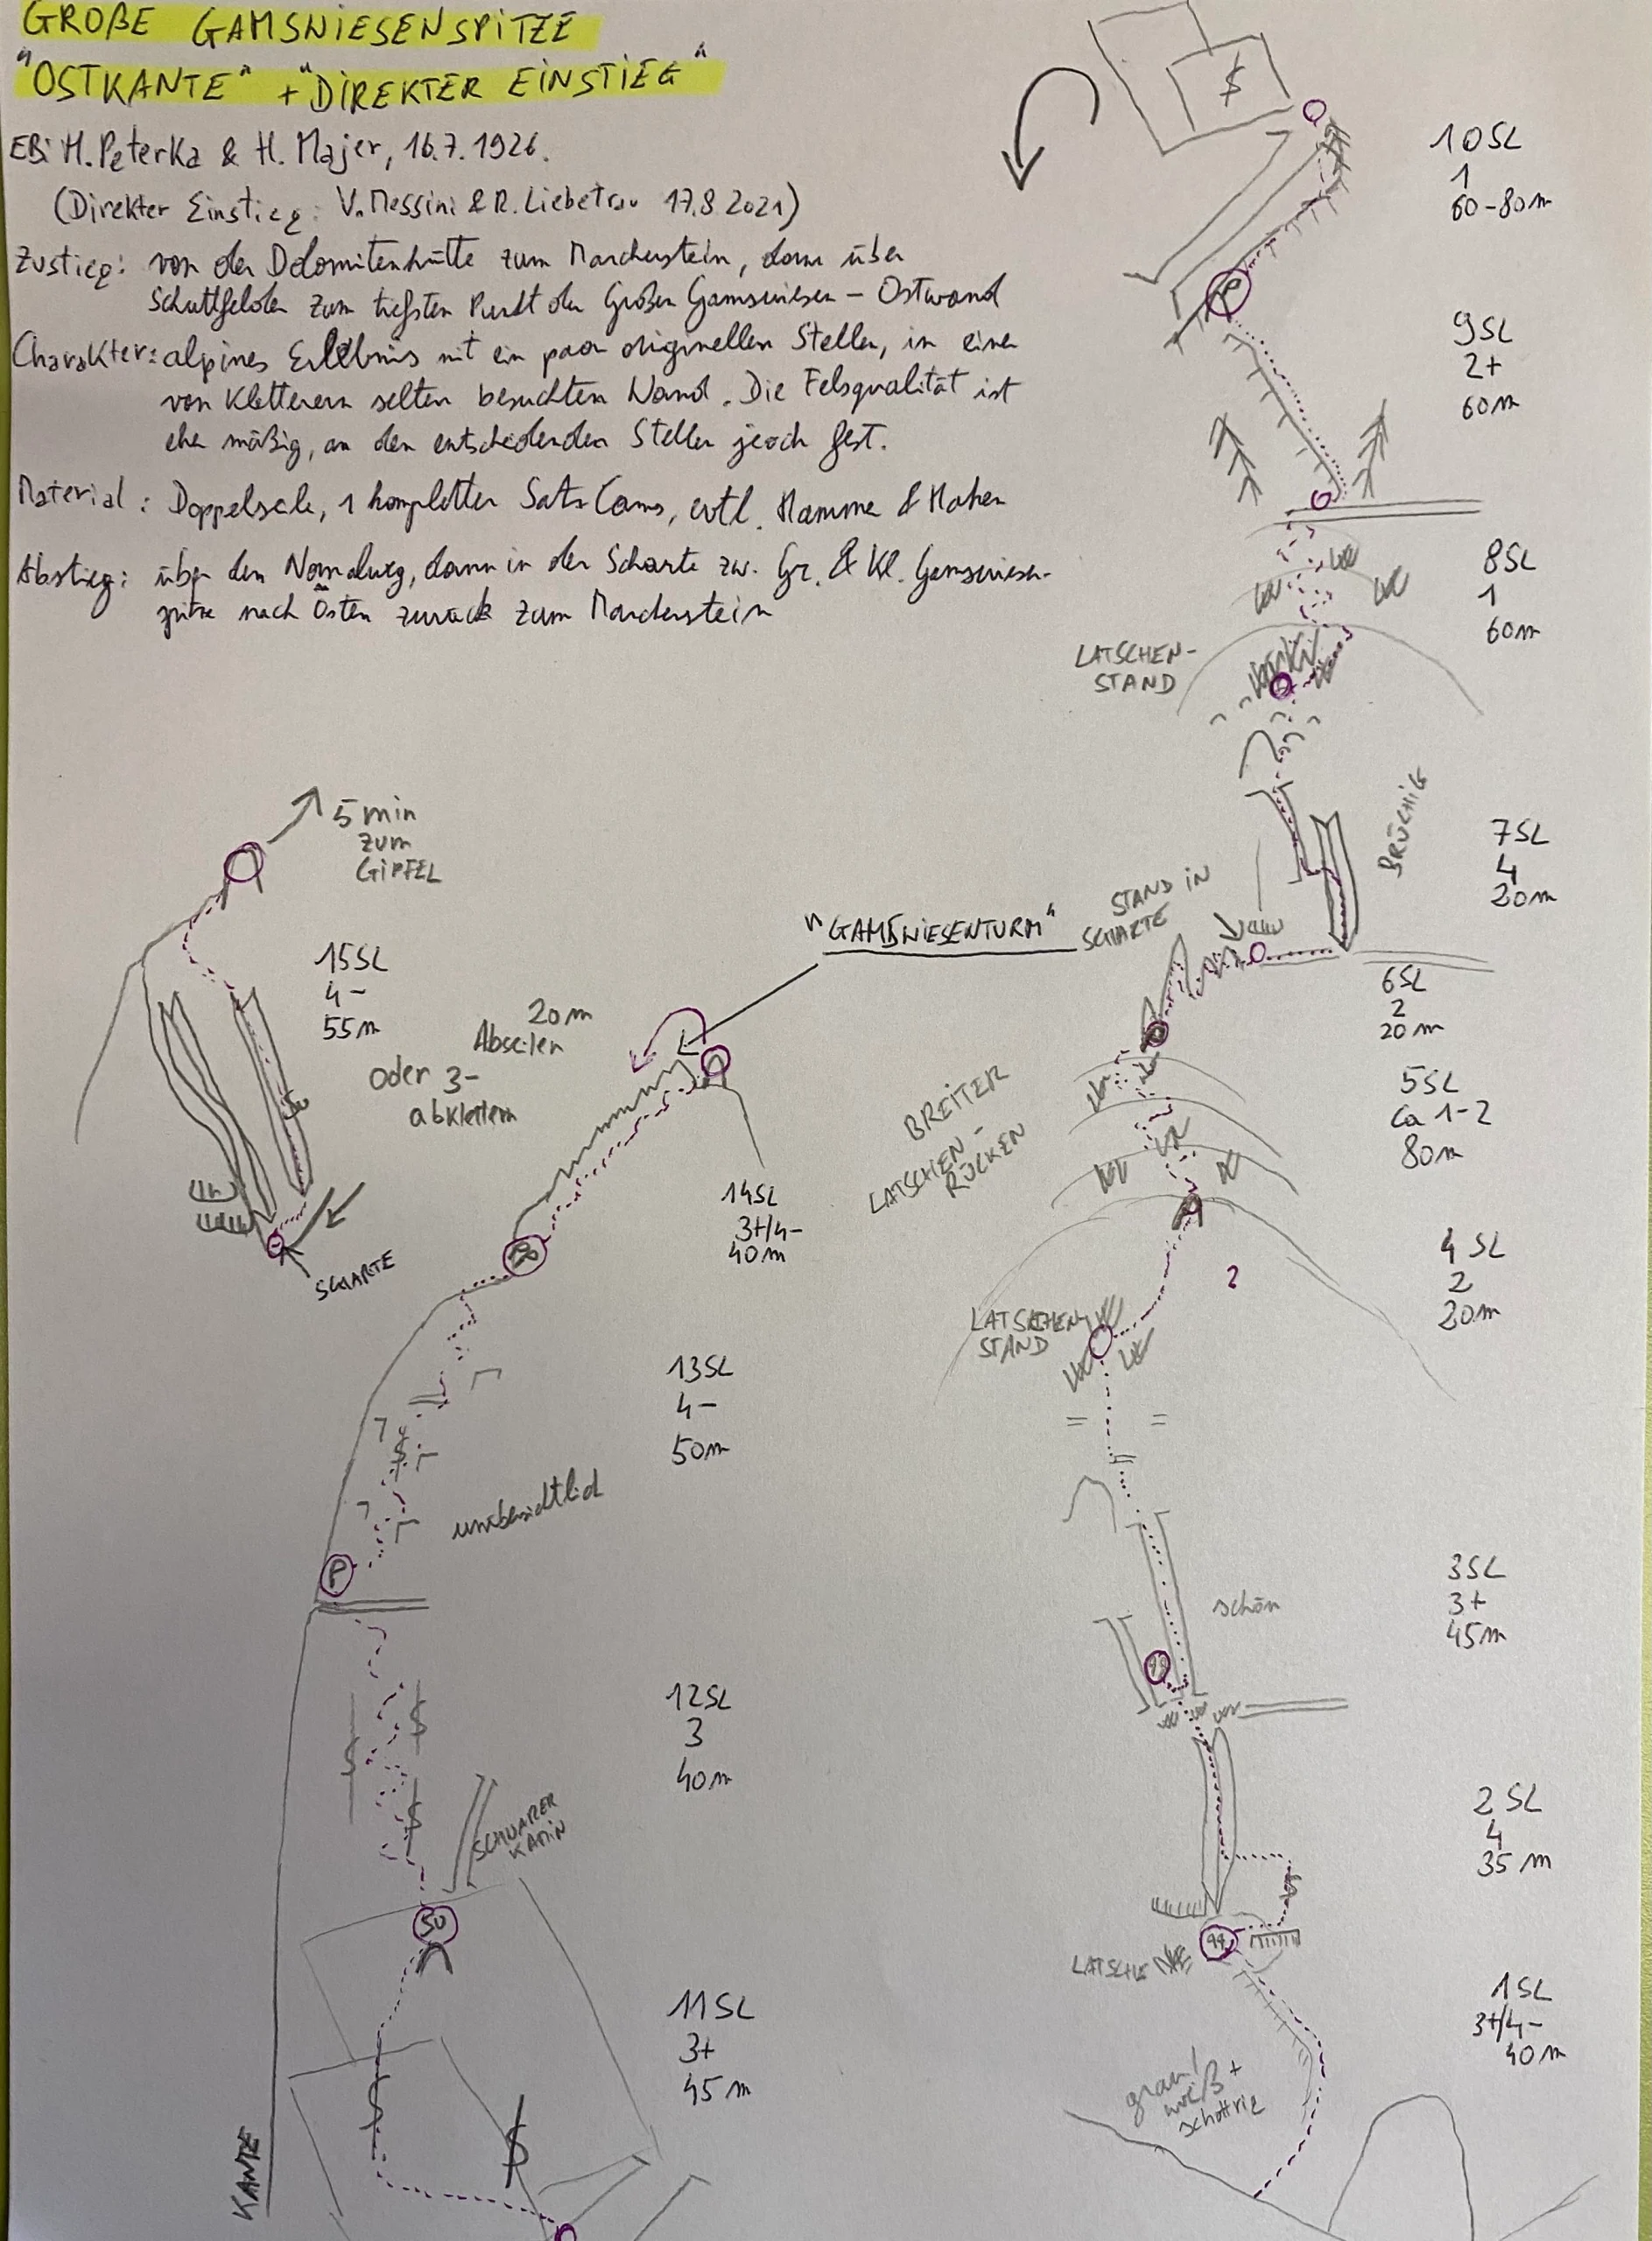 GROßE GAMSWIESENSPITZE
"OSTKANTE" + "DIREKTER EINSTIEG"
EB: H. Peterka & H. Majer, 16.7.1926.
(Direkter Einstieg: V. Messini & R. Liebetrau 17.8.2021)
Zustieg: von der Dolomitenhütte zum Marcherstein, dann über
Schuttfelder zum tiefsten Punkt der Großen Gamswiesen - Ostwand
Charakter: alpines Erlebnis mit ein paar originellen Stellen, in einer
von Kletterern selten besuchten Wand. Die Felsqualität ist
eher mäßig, an den entscheidenden Stellen jedoch fest.
Material: Doppelseile, 1 kompletter Satz Cams, evtl. Hammer & Haken
Abstieg: über den Normalweg, dann in der Scharte zw. Gr. & Kl. Gamswiesen-
spitze nach Osten zurück zum Marcherstein
10SL
1
60-80m
9SL
2+
60m
8SL
1
60m
LATSCHEN-
STAND
BRÜCHIG
7SL
4
20m
STAND IN
SCHARTE
6SL
2
20m
BREITER
LATSCHEN-
RÜCKEN
5SL
ca 1-2
80m
4SL
2
20m
2
LATSCHEN
STAND
schön
3SL
3+
45m
2SL
4
35m
LATSCHE
1SL
3+/4-
40m
grau/
weiß +
schottrig
"GAMSWIESENTURM"
5min
zum
GIPFEL
15SL
4-
55m
SU
SCHARTE
20m
Abseilen
oder 3-
abklettern
14SL
3+/4-
40m
13SL
4-
50m
unübersichtlich
P
12SL
3
40m
SCHWARZER
KAMIN
SU
11SL
3+
45m
KANTE